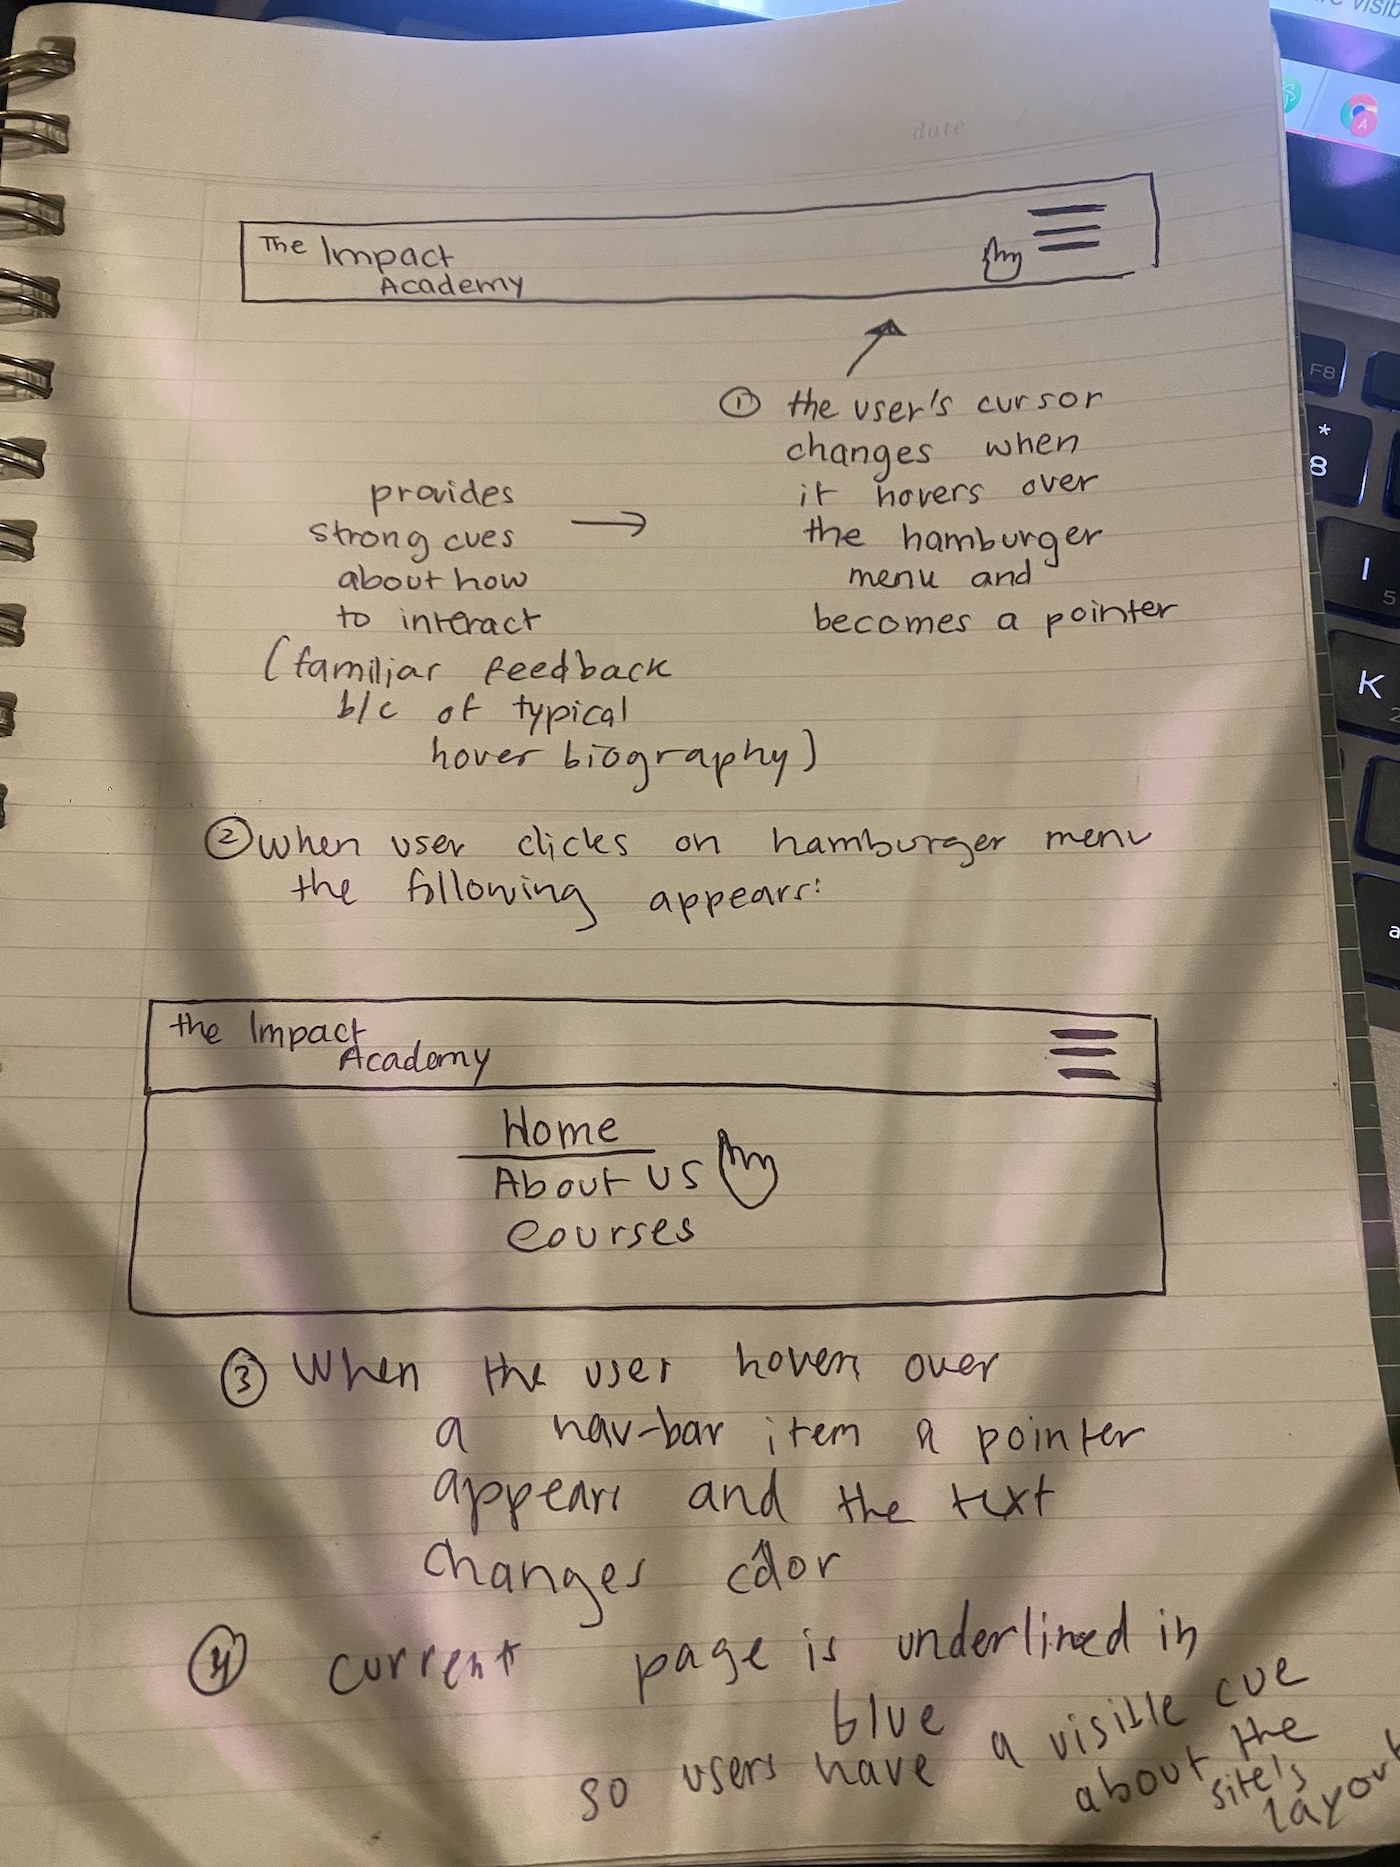 date
The Impact
Academy
① the user's cursor
changes when
it hovers over
the hamburger
menu and
becomes a pointer
provides
strong cues
about how
to interact
(familiar feedback
b/c of typical
hover biography)
② when user clicks on hamburger menu
the following appears:
the Impact
Academy
Home
About us
courses
③ When the user hovers over
a nav-bar item a pointer
appears and the text
changes color
④ current page is underlined in
blue
so users have a visible cue
about the
site's
layout
F8
*
8
I
5
K
2
a